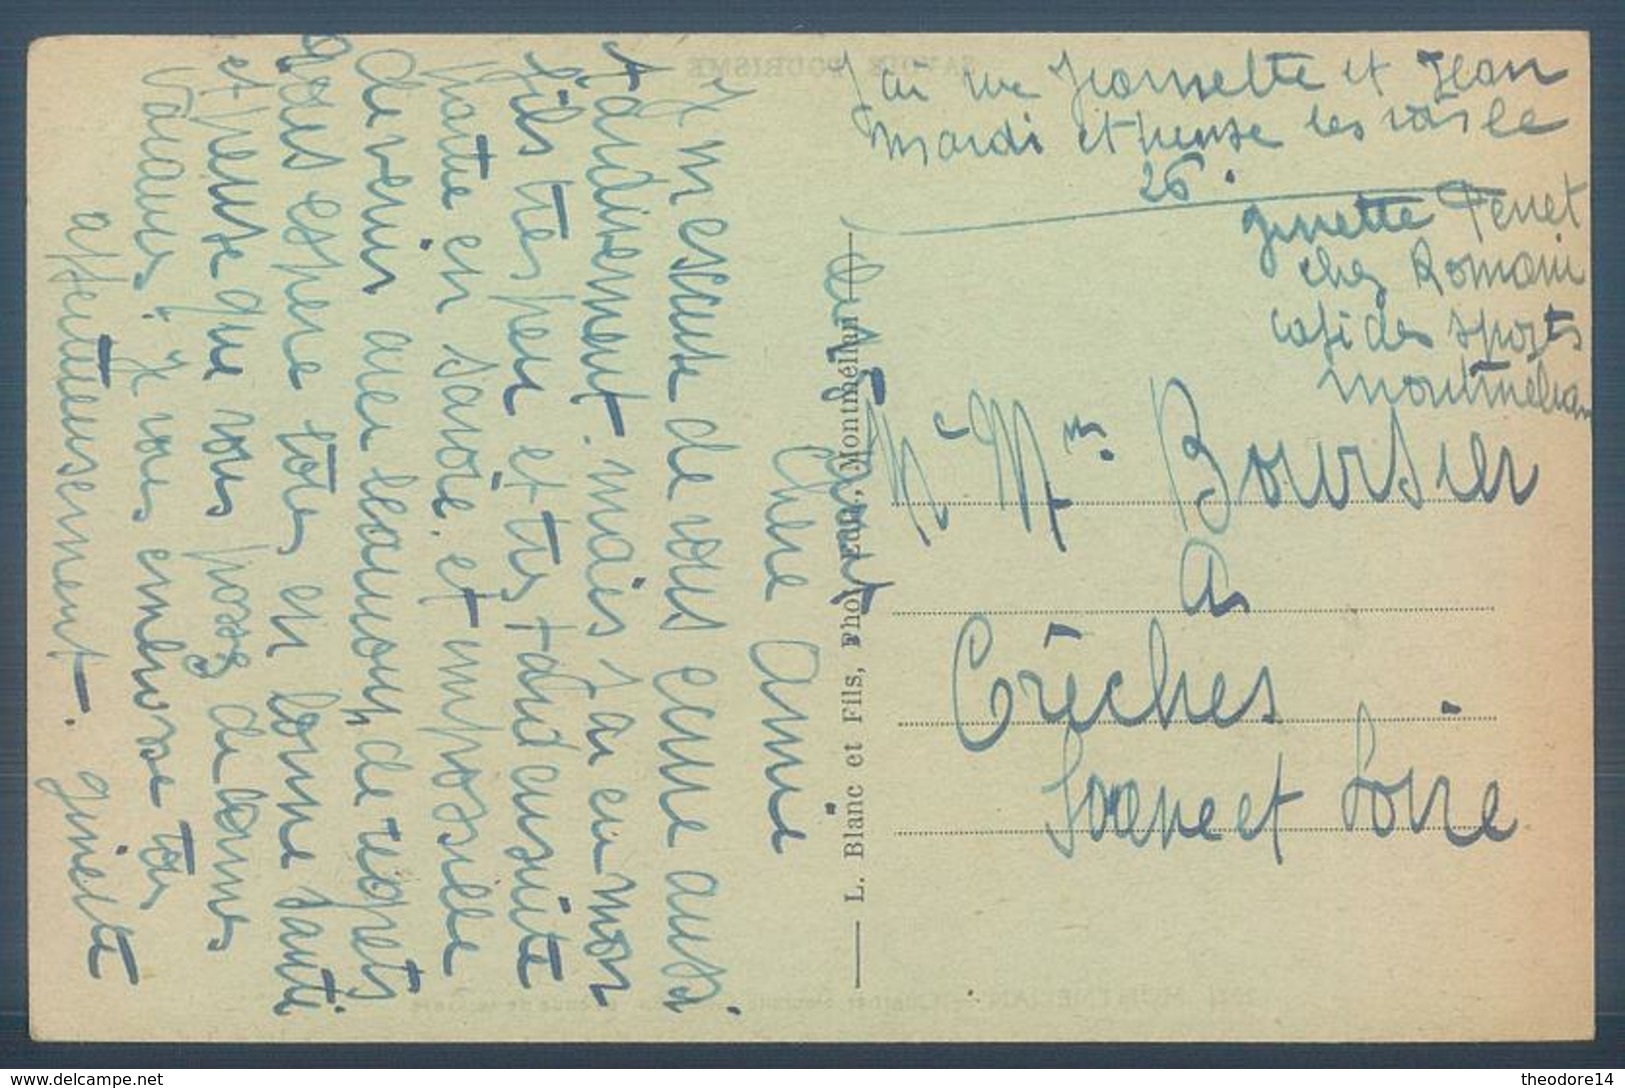 J'ai vu Jeannette et Jean
mardi et pense les voir le
26.
ginette Perret
chez Romain
café des sports
montmélian
Mr Mme Boursier
à
Crèches
Saone et Loire
Chère Amie
Je m'escuse de vous ecrire aussi
tardivement. mais j'ai eu mon
fils très peu et très tard ensuite
partie en savoie. et impossible
de venir avec beaucoup de regrets
Vous espère tous en bonne santé
et pense que vous passez de bonnes
vacances. Je vous embrasse tous
affectueusement. ginette
L. Blanc et Fils, Phot.-Édit., Montmélian
SAVOIE TOURISME
MONTMÉLIAN
theodore14
delcampe.net